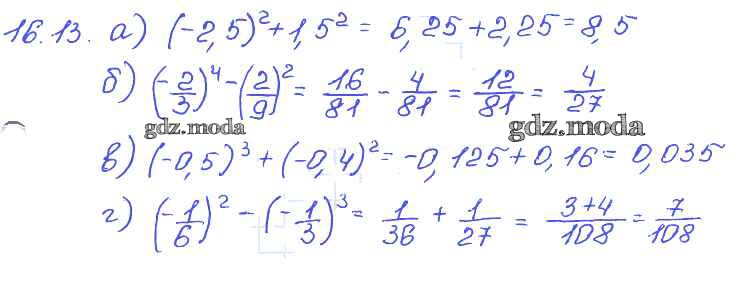 16.13. а) (-2,5)² + 1,5² = 6,25 + 2,25 = 8,5
б) (-2/3)⁴ - (2/9)² = 16/81 - 4/81 = 12/81 = 4/27
gdz.moda gdz.moda
в) (-0,5)³ + (-0,4)² = -0,125 + 0,16 = 0,035
г) (-1/6)² - (-1/3)³ = 1/36 + 1/27 = 3+4/108 = 7/108